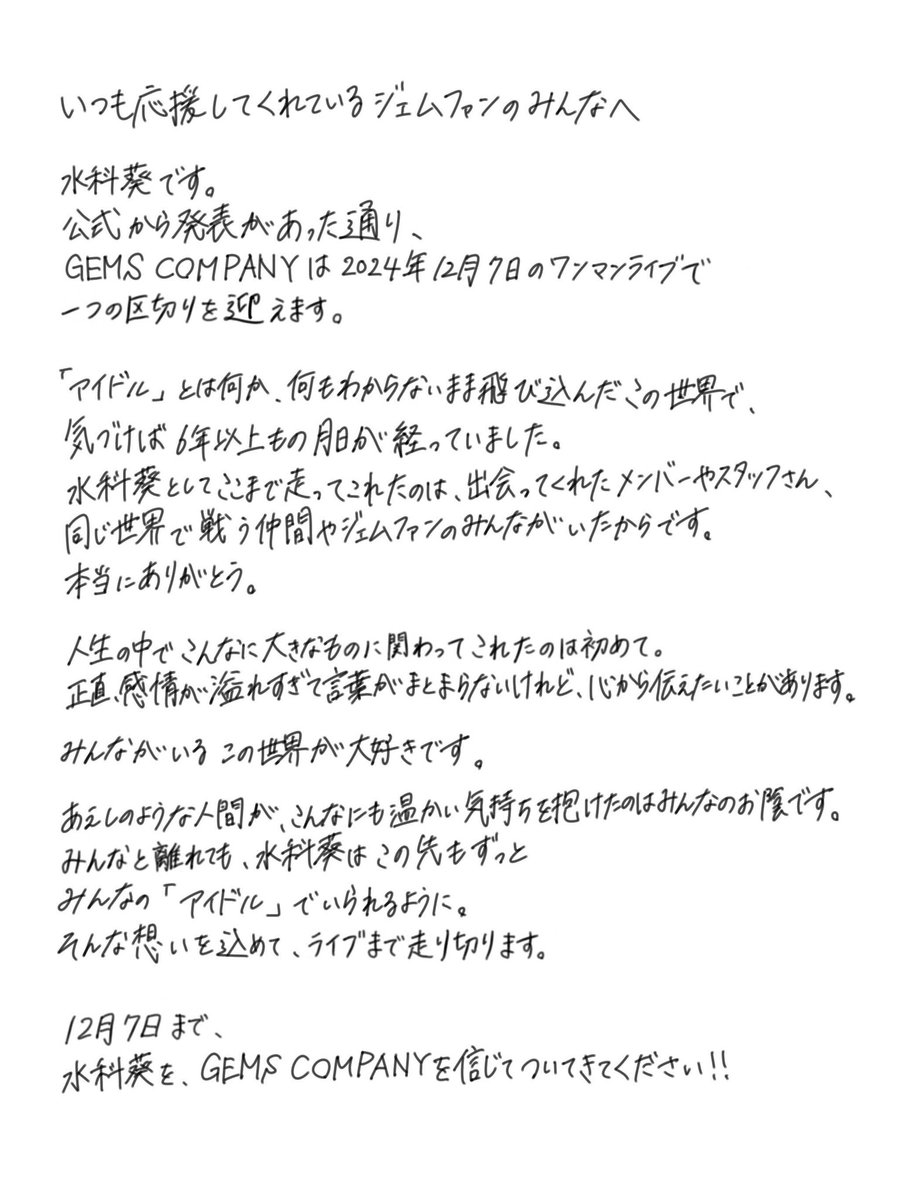 いつも応援してくれているジェムファンのみんなへ
水科葵です。
公式から発表があった通り、
GEMS COMPANYは2024年12月7日のワンマンライブで
一つの区切りを迎えます。
「アイドル」とは何か、何もわからないまま飛び込んだこの世界で、
気づけば6年以上もの月日が経っていました。
水科葵としてここまで走ってこれたのは、出会ってくれたメンバーやスタッフさん、
同じ世界で戦う仲間やジェムファンのみんながいたからです。
本当にありがとう。
人生の中でこんなに大きなものに関わってこれたのは初めて。
正直、感情が溢れすぎて言葉がまとまらないけれど、心から伝えたいことがあります。
みんながいるこの世界が大好きです。
あえしのような人間が、こんなにも温かい気持ちを抱けたのはみんなのお陰です。
みんなと離れても、水科葵はこの先もずっと
みんなの「アイドル」でいられるように。
そんな想いを込めて、ライブまで走り切ります。
12月7日まで、
水科葵を、GEMS COMPANYを信じてついてきてください!!